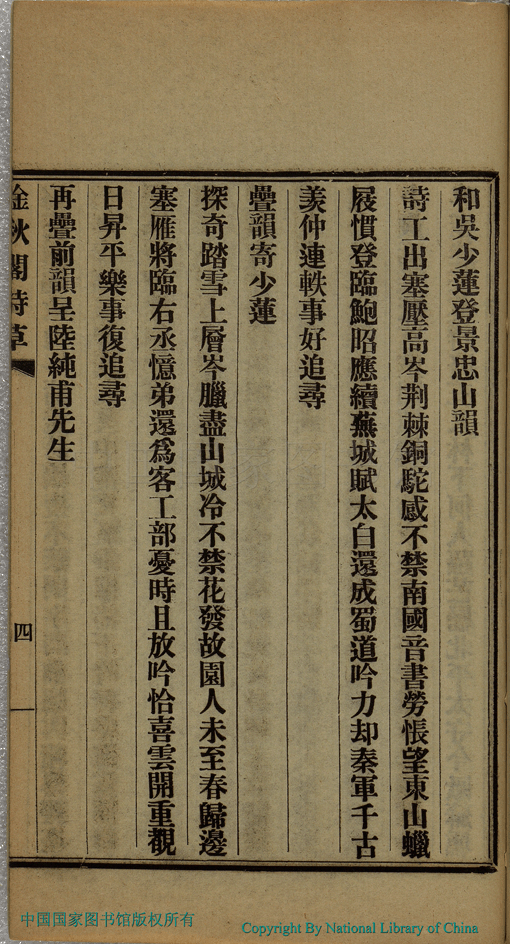 和吳少蓮登景忠山韻
詩工出塞壓高岑荆棘銅駝感不禁南國音書勞悵望東山蠟
屐慣登臨鮑昭應續蕪城賦太白還成蜀道吟力却秦軍千古
羨仲連軼事好追尋
疊韻寄少蓮
探奇踏雪上層岑臘盡山城冷不禁花發故園人未至春歸邊
塞雁將臨右丞憶弟還爲客工部憂時且放吟恰喜雲開重觀
日昇平樂事復追尋
再疊前韻呈陸純甫先生
秋閣詩草
四
中国国家图书馆版权所有
Copyright By National Library of China